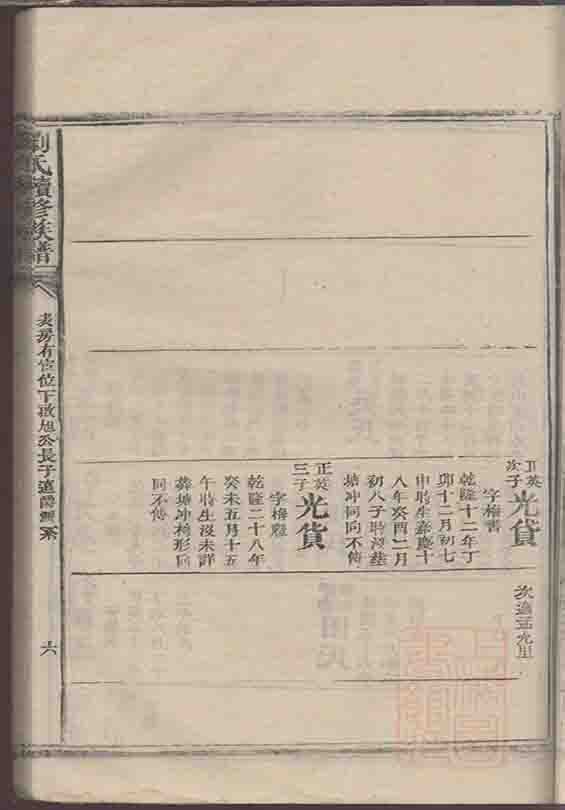 次適孟光里
正英
次子
光貸
字梅書
乾隆十二年丁
卯十二月初七
申時生嘉慶十
八年癸酉二月
初八子時沒葬
塘冲同向不傳
正英
三子
光貨
字梅癡
乾隆二十八年
癸未五月十五
午時生沒未詳
葬塘冲梅形同
向不傳
劉氏續修族譜
房有位下啟旭公長子遠爵系
六